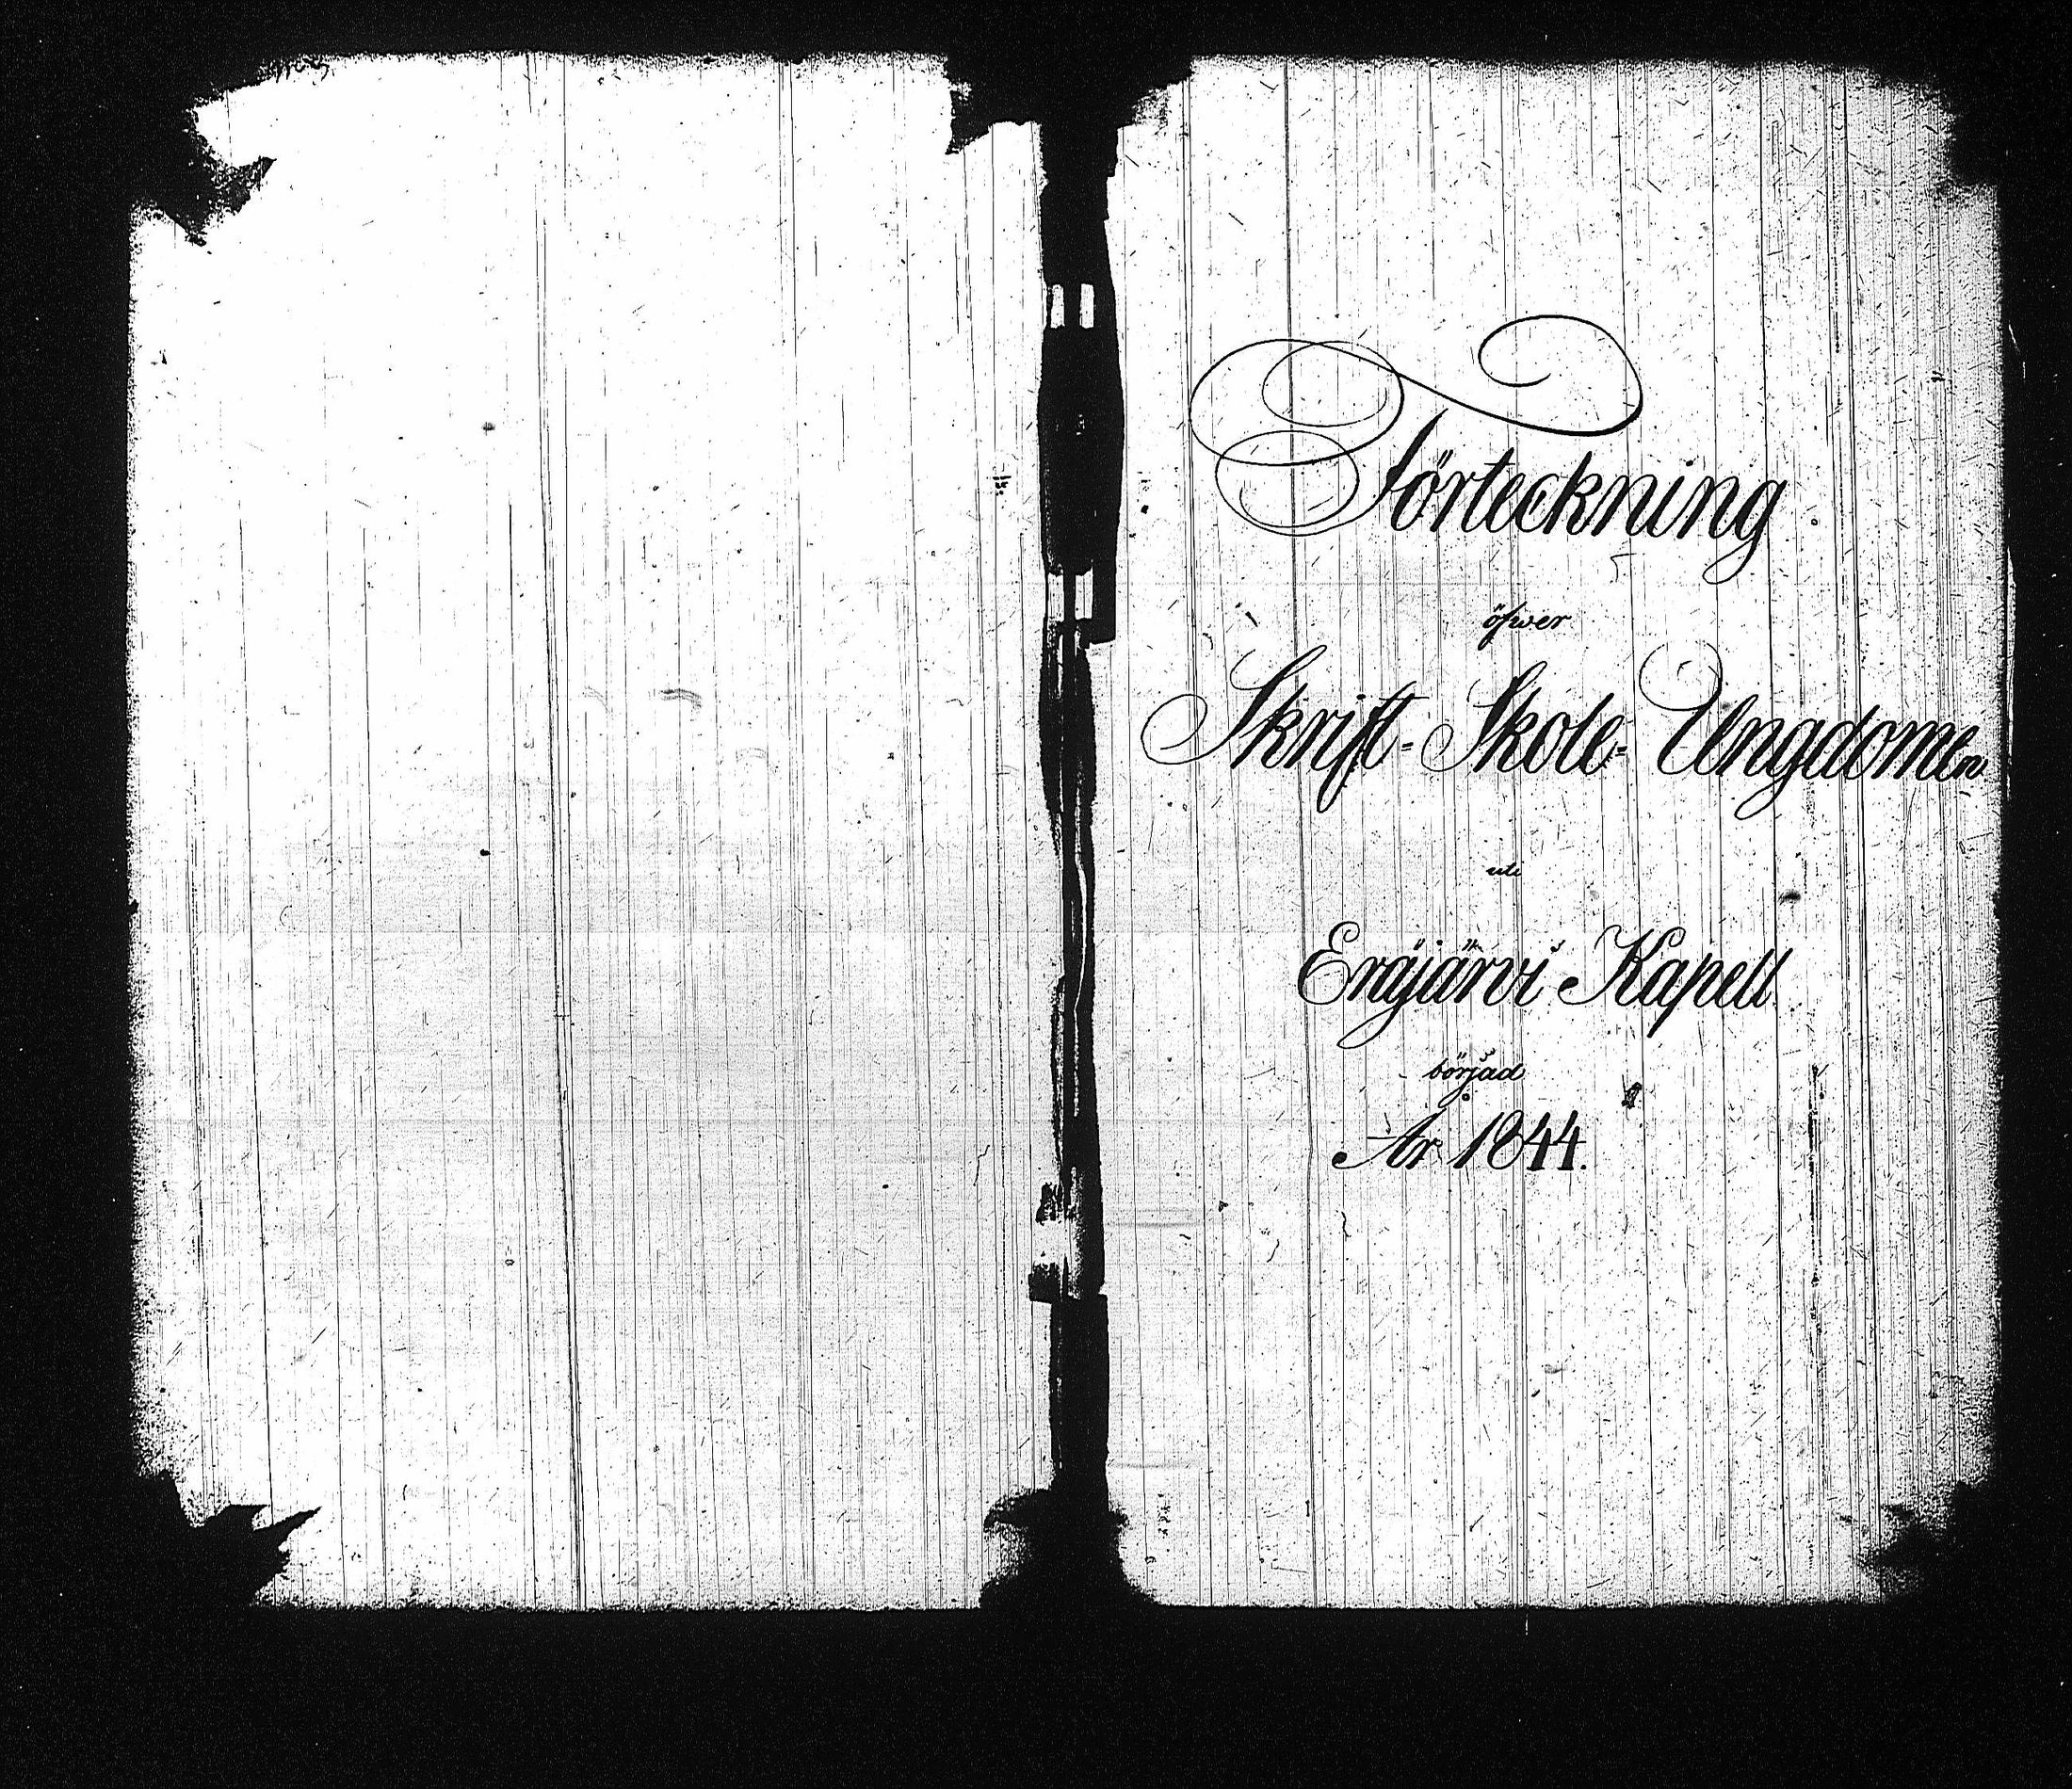 Förteckning
öfwer
Skrift=Skole=Ungdomen
uti
Eräjärvi Kapell
börjad
År 1844.